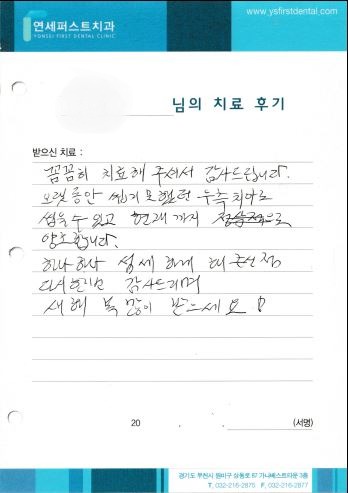 연세퍼스트치과
YONSEI FIRST DENTAL CLINIC
www.ysfirstdental.com
님의 치료 후기
받으신 치료 :
꼼꼼히 치료해 주셔서 감사드립니다.
오랫동안 씹기 못했던 누측 치아로
씹을수 있고 현재까지 정상적으로
양호합니다.
하나하나 섬세하게 해주신점
다시한번 감사드리며
새해 복 많이 받으세요!
20
(서명)
경기도 부천시 원미구 상동로 87 가나베스트타운 3층
T. 032-216-2875 F. 032-216-2877